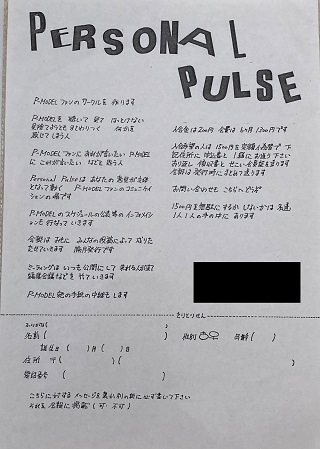 PERSONAL
PULSE
P-MODELファンのサークルを作ります
P-MODELを聴いて見てほっとけない
見捨てようともすとわりつく 何かを
感じてしまう人
P-MODELファンにおれが言いたい P-MODEL
にこれが言いたい などと思う人
Personal Pulseはあなたの発信が主体
となって動く P-MODELファンのコミュニケイシ
ョンの場です
P-MODELのスケジュールの伝達等のインフォメイシ
ョンも行なっていきます
会報は みなに みんなの投稿によって成りた
たせていきます 隔月発行です
ミーティングはいつも公開にして 来れる人は来て
編集会議などを 行ていきます
P-MODEL宛の手紙の中継もします
入会金は200円 会費は6ヶ月1300円です
入会希望の人は1500円を定額小為替で 下
記住所に 申込書と1緒にお送り下さい
おり返し 領収書と せいい会員証を送ります
会報は発行時にまとめて送ります
お問い合わせも こちらにどうぞ
1500円を無駄にするかしないかは 友達
1人1人の手の中に あります
きりとりせん
ふりがな(　　　)
名前(　　　) 性別 ♂♀ 年齢(　)
誕生日(　)月(　)日
住所 〒(　　　)
電話番号(　　　)
こちらに対する メッセージを裏か別の紙に必ず書いて下さい
それを会報に掲載(可・不可)